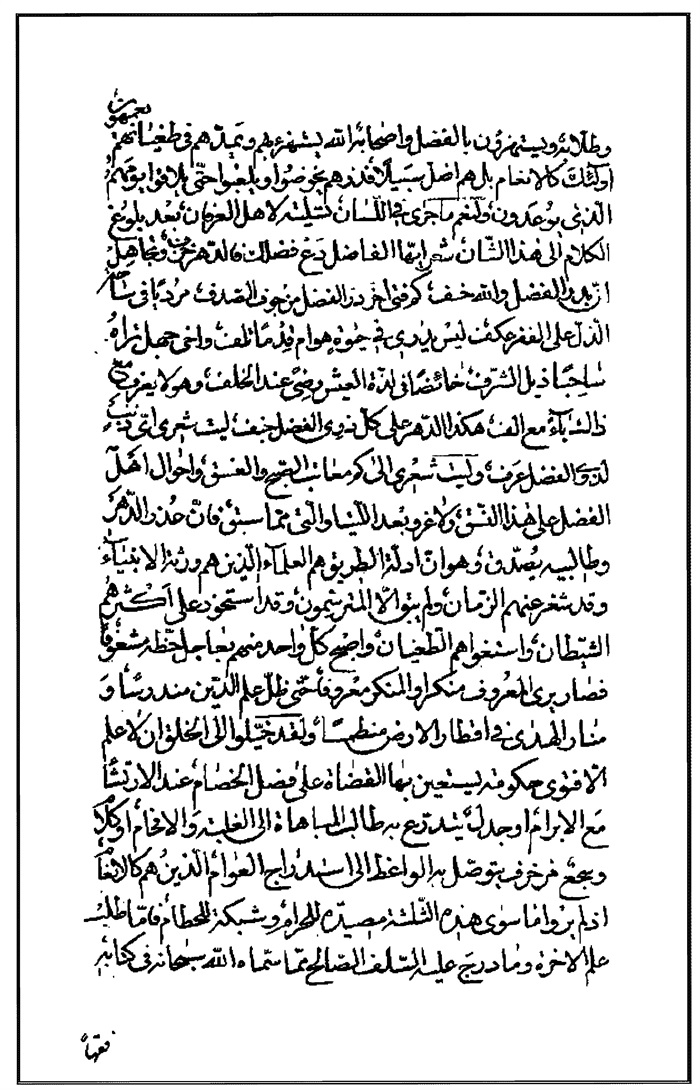 يعمهون
وطلابه ويستهزؤن بالفضل واصحابه الله يستهزئ بهم ويمدهم فى طغيانهم
اولئك كالانعام بل هم اضل سبيلا فذرهم يخوضوا ويلعبوا حتى يلاقوا يومهم
الذى يوعدون ولنعم ما جرى فى اللسان تسلية لاهل العرفان بعد بلوغ
الكلام الى هذا الشان شعر ايها الفاضل دع فضلك فالدهر
الفضل والله كم فتى اخر در الفضل من جوف الصدف
الذل على الفقر عكف ليس يدرى فى هوام قد ما تلف واخى جهل تراه
ساحبا ذيل الشرف خائضا فى لذة العيش رضى عند الخلف وهو لا يعرف
مع الف هكذا الدهر على كل ذوى الفضل ليت شعرى اى ذنب
لذوى الفضل عرف وليت شعرى الى كم معاتب الصبح والغسق واحوال اهل
الفضل على هذا النسق ولا غرو بعد اللتيا والتى مما سبق فان عذر الدهر
وطالبيه يصدق وهو ان ادلة الطريق هم العلماء الذين هم ورثة الانبياء
وقد شغر عنهم الزمان ولم يبق الا المترسمون وقد استحوذ على اكثرهم
الشيطان واستغواهم الطغيان واصبح كل واحد منهم بعاجل حظه مشغوفا
فصار يرى المعروف منكرا والمنكر معروفا حتى ظل علم الدين مندرسا و
منار الهدى فى اقطار الارض منطمسا ولقد خيلوا الى الخلق ان لا علم
الا فتوى حكومة يستعين بها القضاة على فصل الخصام عند الارتشا
مع الابرام او جدل يتدرع به طالب المباهاة الى الغلبة والافحام او كلام
وسجع مزخرف يتوصل به الواعظ الى استدراج العوام الذين هم كالانعام
اذ لم يروا ما سوى هذه الثلثة مصيدة للحرام وشبكة للحطام فاما طلب
علم الاخرة وما درج عليه السلف الصالح مما سماه الله سبحانه فى كتابه
فقها